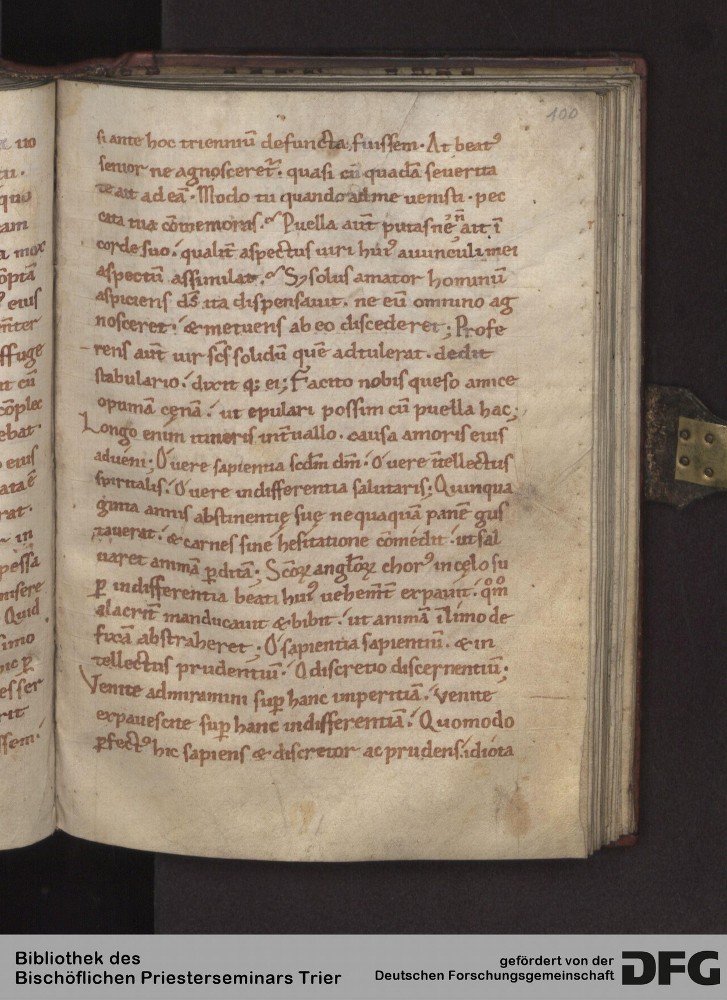 no
tu.
quo
tam
a mox
optā
eius
m̄ter
ffuge
cū
cōplec
ebat.
eius
ataē
rat.
in
pessa
misere
Quid
simo
hic ꝑ
es ser
rit
ssem.
100
si ante hoc trienniū defuncta fuissem. At beatꝰ
senior ne agnosceret᷑. quasi cū quadā seuerita
te ait ad eā. Modo tu quando ad me uenisti. pec
cata tua cōmemoras. Puella aut̄ putas ne᷑ ait ī
corde suo. qualit᷑ aspectus uiri huiꝰ auunculi mei
aspectū assimilat. Sꝫ solus amator hominū
aspiciens ds̄ ita dispensauit. ne eū omnino ag
nosceret. & metuens ab eo discederet; Profe
rens aut̄ uir scs̄ solidū quē adtulerat. dedit
stabulario. dixit qꝫ ei; Facito nobis queso amice
opumā cęnā. ut epulari possim cū puella hac;
Longo enim itineris int᷑uallo. causa amoris eius
adueni; O uere sapientia scdm̄ dm̄. O uere ītellectus
spiritalis. O uere indifferentia salutaris; Quinqua
ginta annis abstinentię suę nequaquā panē gus
tauerat. & carnes sine hesitatione cōmedit. ut sal
uaret animā ꝑditā; Scōꝝ angl̄oꝝ chorꝰ in cęlo su
ꝑ indifferentia beati huiꝰ uehem̄t expauit. qm̄o
alacrit᷑ manducauit & bibit. ut animā ī limo de
fixā abstraheret; O sapientia sapientiū. & in
tellectus prudentiū. O discretio discernentiū;
Venite admiramini sup̄ hanc imperitiā. uenite
expauescite sup̄ hanc indifferentiā. Quomodo
ꝑfectꝰ hic sapiens & discretor ac prudens. idiota
Bibliothek des
Bischöflichen Priesterseminars Trier
gefördert von der
Deutschen Forschungsgemeinschaft
DFG